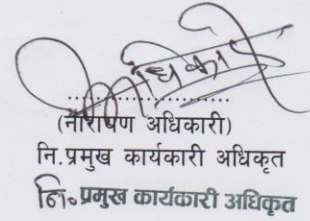 अधिकारी
....................
(नारायण अधिकारी)
नि.प्रमुख कार्यकारी अधिकृत
नि॰ प्रमुख कार्यकारी अधिकृत